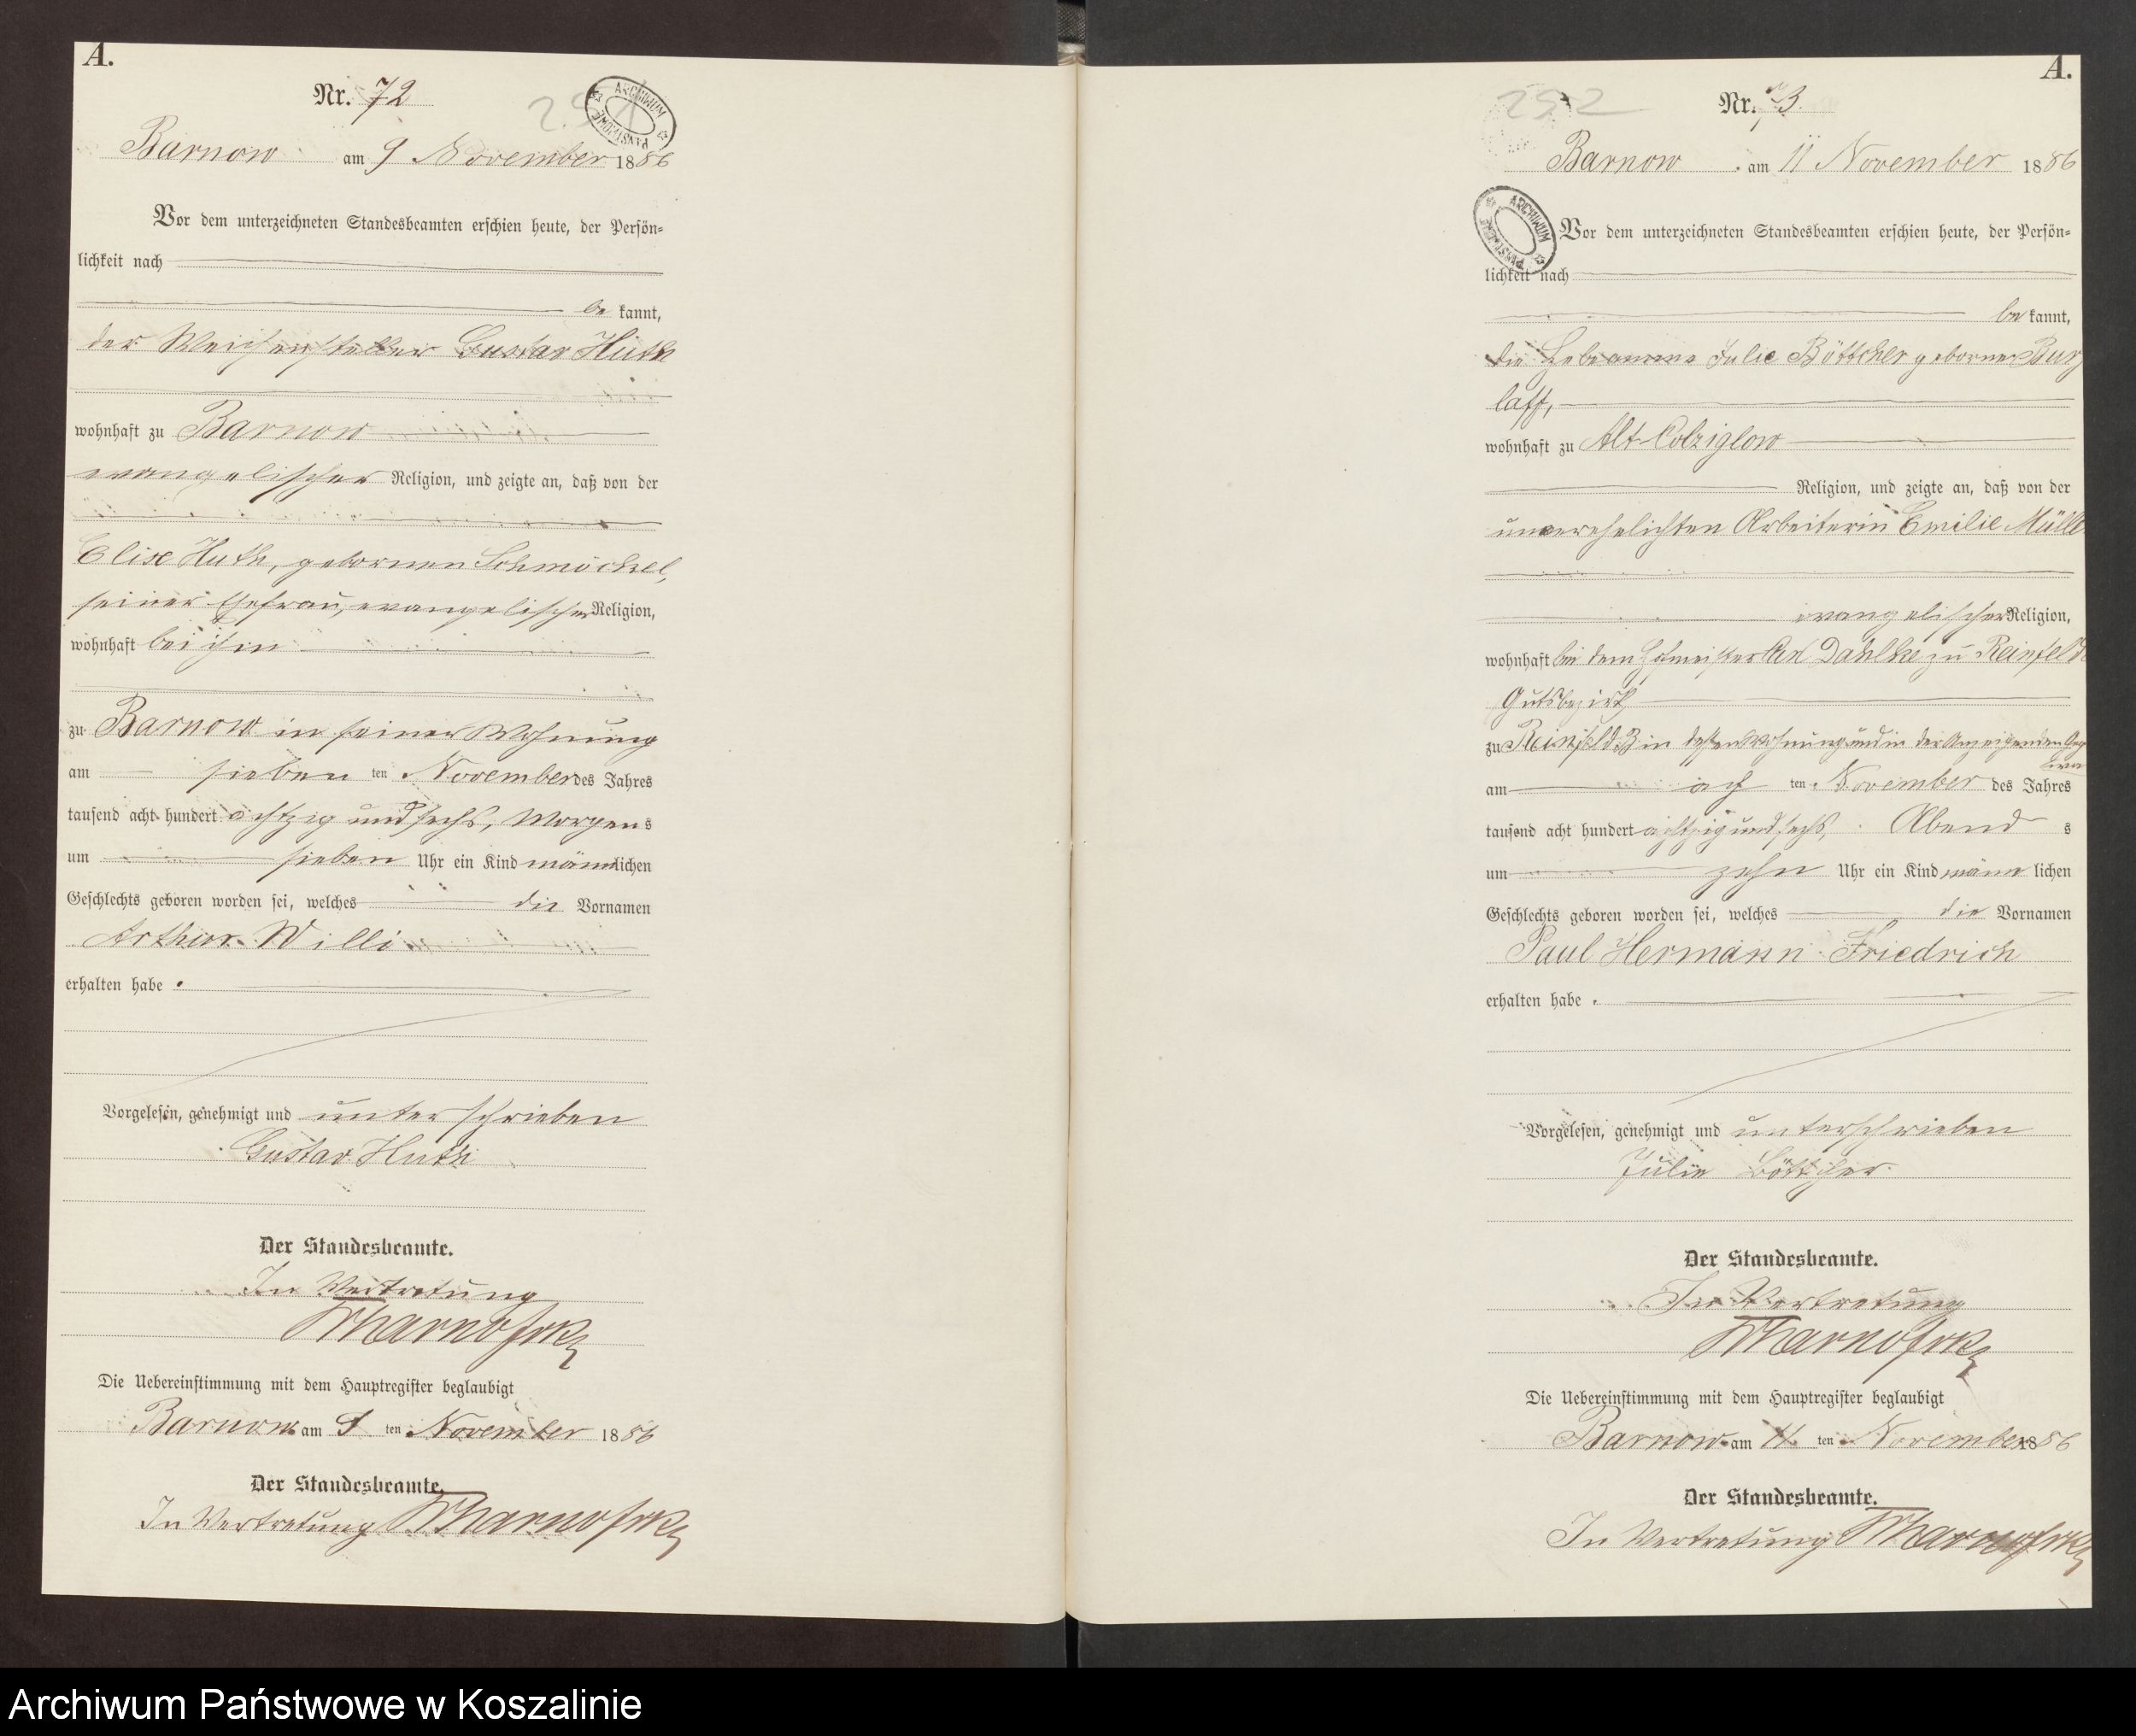 A.
Nr. 72
251
ARCHIWUM PAŃSTWOWE
Barnow am 9 November 1886
Vor dem unterzeichneten Standesbeamten erschien heute, der Persön-
lichkeit nach
be kannt,
der Weichensteller Gustav Huth
wohnhaft zu Barnow
evangelischer Religion, und zeigte an, daß von der
Elise Huth, gebornen Schmöckel,
seiner Ehefrau, evangelischer Religion,
wohnhaft bei ihm
zu Barnow in seiner Wohnung
am sieben ten November des Jahres
tausend acht hundert achtzig und sechs, Morgens
um sieben Uhr ein Kind männlichen
Geschlechts geboren worden sei, welches die Vornamen
Arthur Willi
erhalten habe.
Vorgelesen, genehmigt und unterschrieben
Gustav Huth
Der Standesbeamte.
In Vertretung
Die Uebereinstimmung mit dem Hauptregister beglaubigt
Barnow am 9 ten November 1886
Der Standesbeamte.
In Vertretung
A.
252
Nr. 73.
Barnow am 11 November 1886
ARCHIWUM PAŃSTWOWE
Vor dem unterzeichneten Standesbeamten erschien heute, der Persön-
lichkeit nach
be kannt,
die Hebeamme Julie Böttcher geborne Burz
laff,
wohnhaft zu Alt Colziglow
Religion, und zeigte an, daß von der
unverehelichten Arbeiterin Emilie Mülle
evangelischer Religion,
wohnhaft bei dem Hofmeister Dahlke zu Reinfeld
Gutsbezirk
zu Reinfeld B in dessen Wohnung und in der Anzeigenden Geg
am ach ten November des Jahres
tausend acht hundert achtzig und sechs, Abend s
um zehn Uhr ein Kind männ lichen
Geschlechts geboren worden sei, welches die Vornamen
Paul Hermann Friedrich
erhalten habe.
Vorgelesen, genehmigt und unterschrieben
Julie Böttcher
Der Standesbeamte.
In Vertretung
Die Uebereinstimmung mit dem Hauptregister beglaubigt
Barnow am 11. ten November 1886
Der Standesbeamte.
In Vertretung
Archiwum Państwowe w Koszalinie